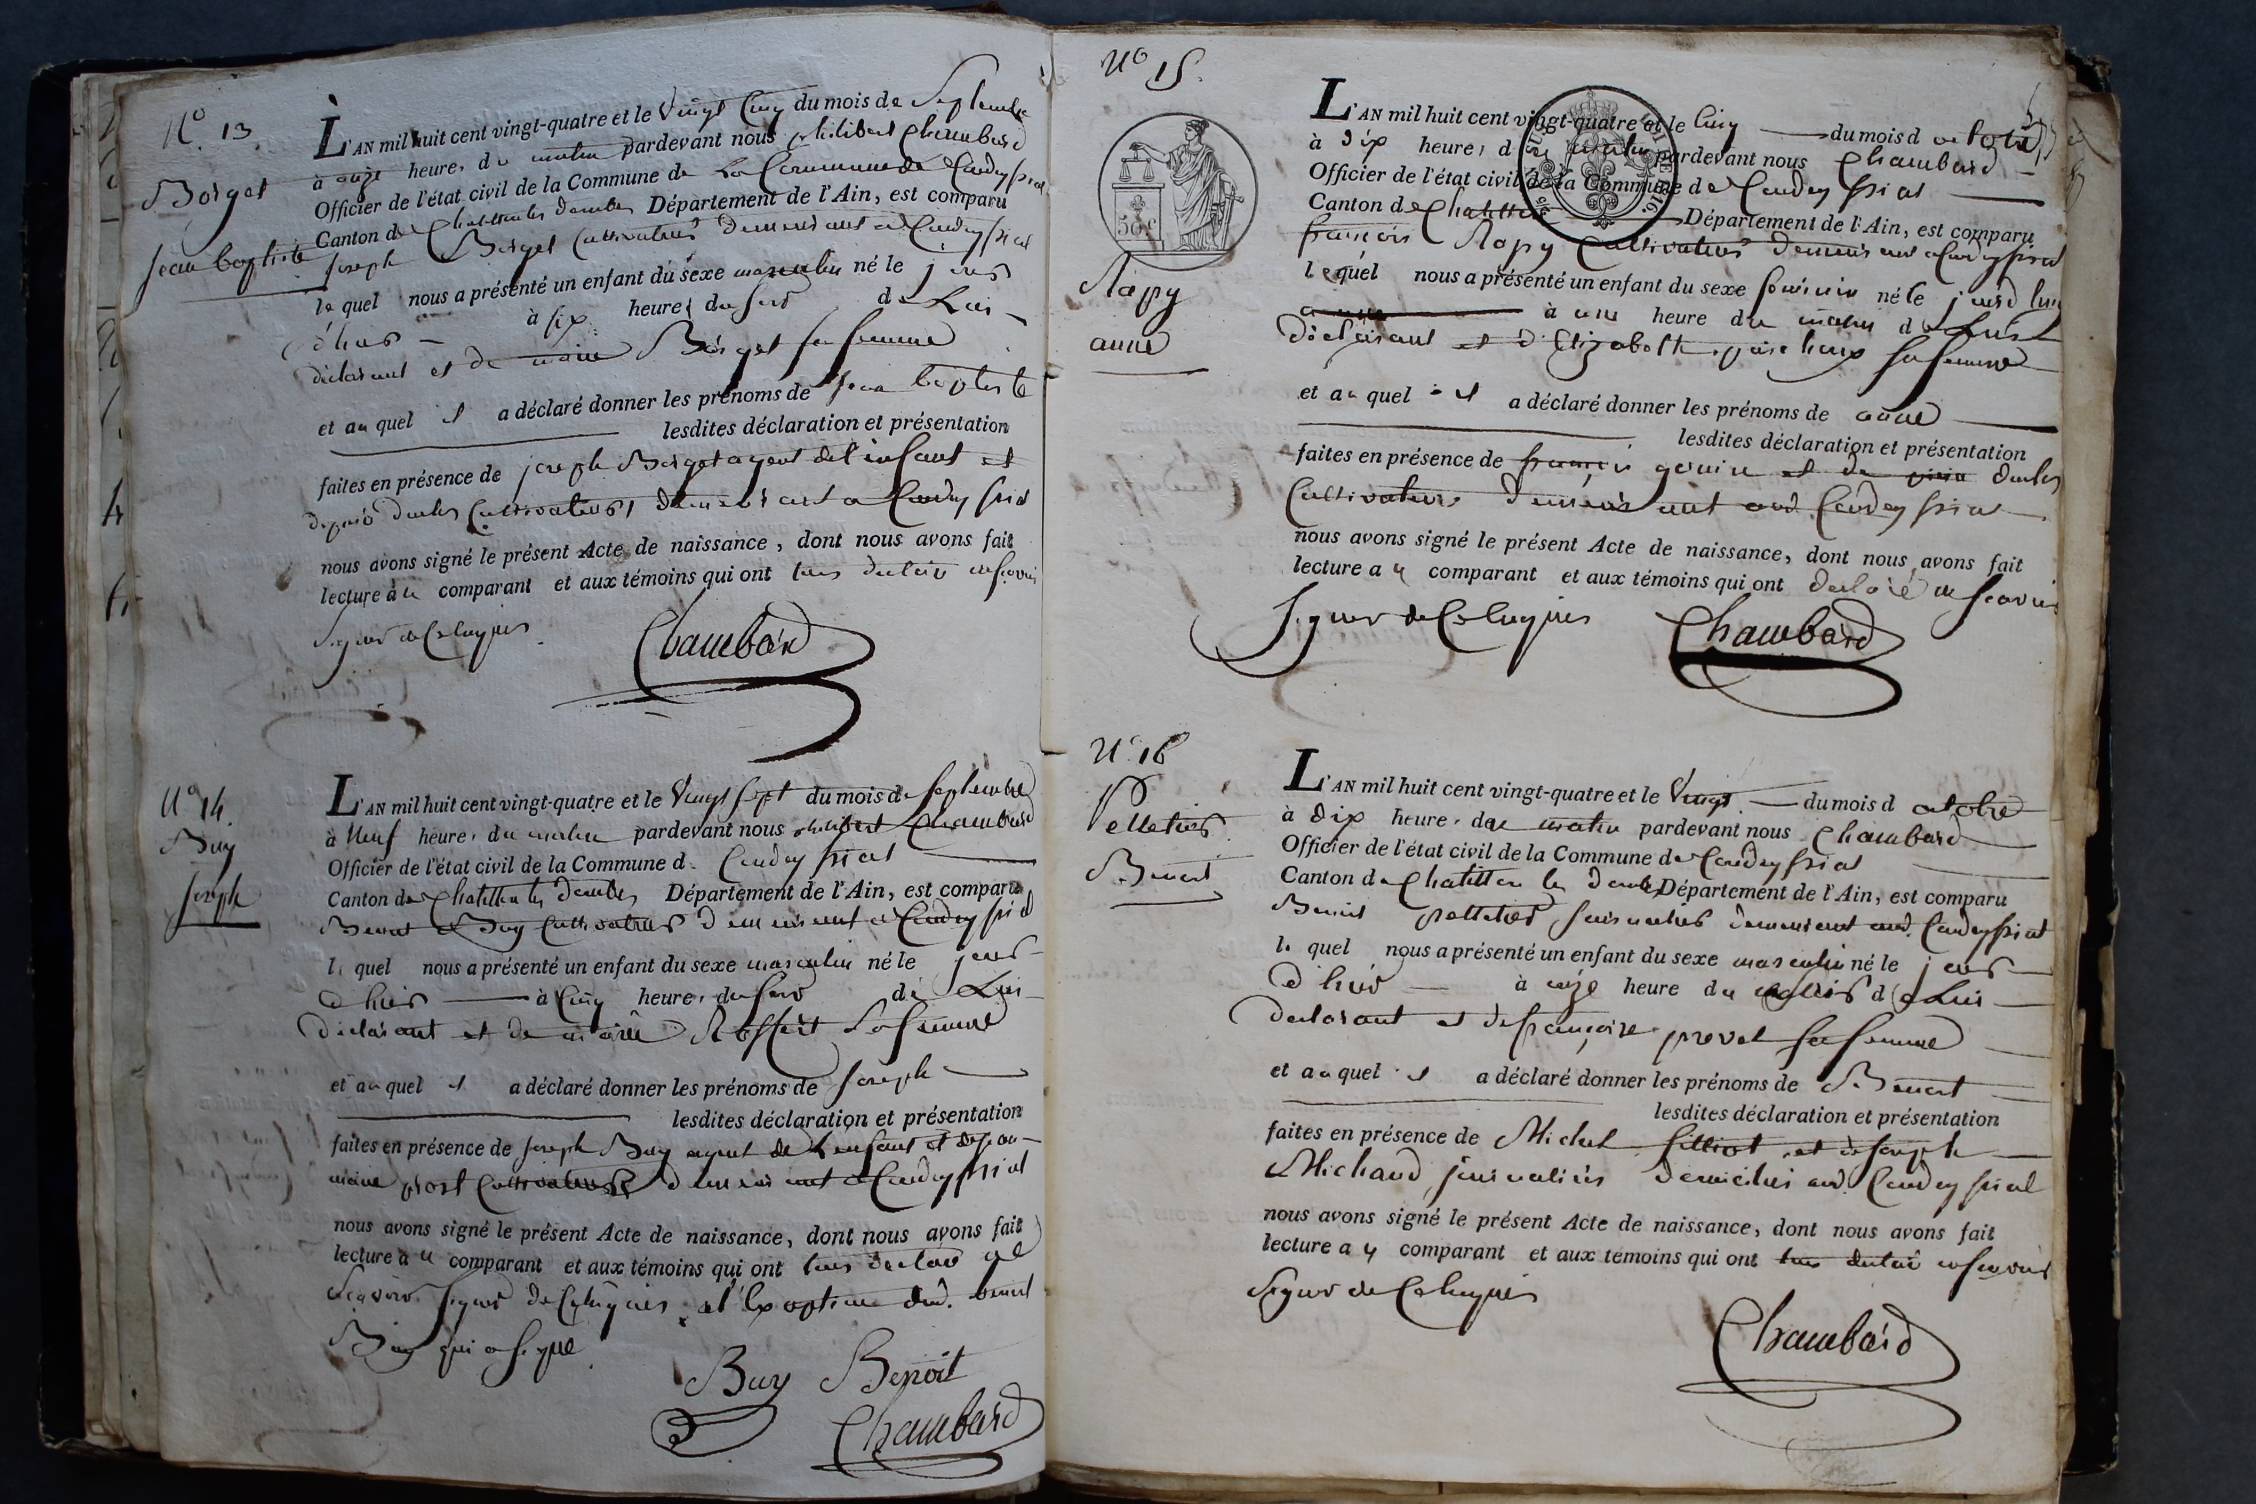 N.º 13
Borget
Jean baptiste
L'AN mil huit cent vingt-quatre et le Vingt Cinq du mois de Septembre
à onze heures du matin pardevant nous philibert Chambard
Officier de l'état civil de la Commune de La Commune de Condeyssiat
Canton de Chatillon les dombes Département de l'Ain, est comparu
joseph Borget Cultivateur demeurant a Condeyssiat
lequel nous a présenté un enfant du sexe masculin né le jour
d'hier à six heures du soir de Lui
déclarant et de marie Borget sa femme
et auquel il a déclaré donner les prénoms de jean baptiste
lesdites déclaration et présentation
faites en présence de joseph Borget ayeul de l'enfant et
Cultivateurs demeurant a Condeyssiat
nous avons signé le présent Acte de naissance, dont nous avons fait
lecture au comparant et aux témoins qui ont tous declaré ne savoir
signer de Ce Enquis
Chambard
Nº 14.
Buy
joseph
L'AN mil huit cent vingt-quatre et le Vingt sept du mois de septembre
à Neuf heures du matin pardevant nous philibert Chambard
Officier de l'état civil de la Commune d. Condeyssiat
Canton de Chatillon les dombes Département de l'Ain, est comparu
Benoit Buy Cultivateur demeurant a Condeyssiat
lequel nous a présenté un enfant du sexe masculin né le jour
d'hier à Cinq heures du soir de Lui
déclarant et de marie sa femme
et auquel il a déclaré donner les prénoms de joseph
lesdites déclaration et présentation
faites en présence de joseph Buy ayeul de l'enfant et
Cultivateurs demeurant a Condeyssiat
nous avons signé le présent Acte de naissance, dont nous avons fait
lecture au comparant et aux témoins qui ont tous declaré ne
Scavoir signer de Ce Enquis a l'exception dud. benoit
Buy qui a signé
Buy Benoit
Chambard
Nº 15.
50 c
Rapy
anne
L'AN mil huit cent vingt-quatre et le Cinq du mois d octobre
à dix heures du matin pardevant nous Chambard
Officier de l'état civil de la Commune de Condeyssiat
Canton de Chatillon Département de l'Ain, est comparu
françois Rapy Cultivateur demeurant a Condeyssiat
lequel nous a présenté un enfant du sexe féminin né le
à une heure du matin de Lui
déclarant et d'Elizabeth sa femme
et auquel il a déclaré donner les prénoms de anne
lesdites déclaration et présentation
faites en présence de françois et de
Cultivateurs demeurant aud. Condeyssiat
nous avons signé le présent Acte de naissance, dont nous avons fait
lecture au comparant et aux témoins qui ont declaré ne scavoir
signer de Ce Enquis
Chambard
Nº 16
Pelletier
Benoit
L'AN mil huit cent vingt-quatre et le Vingt du mois d octobre
à dix heures du matin pardevant nous Chambard
Officier de l'état civil de la Commune de Condeyssiat
Canton de Chatillon les dombes Département de l'Ain, est comparu
Benoit pelletier journalier demeurant aud. Condeyssiat
lequel nous a présenté un enfant du sexe masculin né le jour
d'hier à onze heure du de Lui
declarant et de françoise provet sa femme
et auquel il a déclaré donner les prénoms de Benoit
lesdites déclaration et présentation
faites en présence de Michel et de joseph
Michaud, journaliers domiciliés aud. Condeyssiat
nous avons signé le présent Acte de naissance, dont nous avons fait
lecture au comparant et aux témoins qui ont tous declaré ne scavoir
signer de Ce Enquis
Chambard